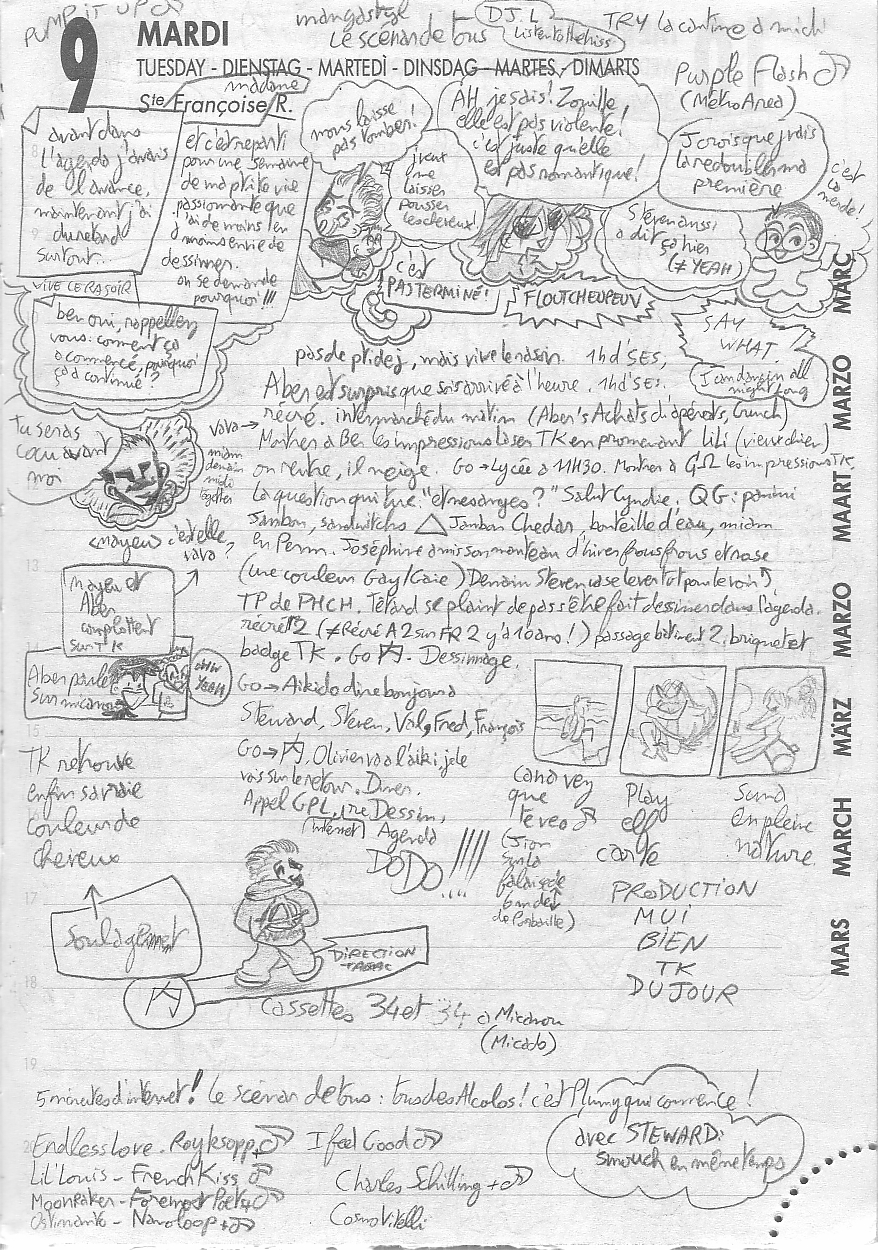 PUMP IT UP
mangastyl
D.J. L
TRY la cantine a midi
Le scénar de tous
Listen to the hiss
9 MARDI
TUESDAY - DIENSTAG - MARTEDÌ - DINSDAG - MARTES, DIMARTS
madame
Ste Françoise R.
Purple Flash
(Metro Area)
avant dans
l'agenda j'avais
de l'avance,
maintenant j'ai
du retard
surtout...
et c'est reparti
pour une semaine
de ma ptite vie
passionante que
j'ai de moins en
moins envie de
dessiner.
on se demande
pourquoi!!!
nous laisse
pas tomber!
j'veux
me
laisser
pousser
les cheveux!
AH je sais! Zouille,
elle est pas violente!
c'est juste qu'elle
est pas romantique!
J'crois que j'vais
la redoubler ma
première
c'est
la
merde!
Steven aussi
a dit ça hier
(≠ YEAH)
c'est
PAS TERMINÉ!
FLOUTCHEUPEUV
VIVE CE RASOIR
ben oui, rappellez
vous: comment ça
a commencé, pourquoi
ça a continué?
SAY
WHAT.
I can dance in all
night long
pas de ptidej, mais vive le rasoir. 1h d'SES,
Aber est surpris que sois arrivé à l'heure. 1h d'SES.
récré. intermarché du matin (Aber's Achats d'apéros, Crunch)
Montrer a Be les impressions laser TK en promenant Lili (vieux chien)
on rentre, il neige. Go → Lycée a 11H30. Montrer a GΩ les impressions TK.
La question qui tue: "et nes anges?" Salut Cyndie. QG: panini
Jambon, sandwitchs △ Jambon Chedar, bouteille d'eau, miam
en Perm. Joséphine a mis son manteau d'hiver froufrous et rose
(une couleur Gay/Gaie) Demain Steven va se lever tot pour le voir
TP de PHCH. Têtard se plaint de pas s'être fait dessiner dans l'agenda.
récré 2 (≠ Récré A2 sur FR2 y'a 10 ans!) passage bâtiment 2. briquet et
badge TK. Go 内. Dessinage.
Go → Aikido dire bonjour a
Steward, Steven, Val, Fred, François
Go → 内, Olivier va a l'aiki, je le
vois sur le retour. Diner.
Appel GPL, ire Dessin,
(internet) Agenda
DODO !!!!
Tu seras
cocu avant
moi
vava →
miam
demain
midi
together
<moyeu> c'est elle,
vava?
Moyeu et
Aber
complottent
sur TK
Aber parle
sur micanou
ohw
YEAH
TK retrouve
enfin sa vraie
couleur de
cheveux
Soulagement
DIRECTION
TABAC
内
Cada vez
que
te veo
(Jior
sur la
falaise de
6m de
de Ponbaille)
Play
elf
carte
Sund
en pleine
nature.
PRODUCTION
MUI
BIEN
TK
DU JOUR
cassettes 34 et 34 a Micanou
(Micado)
5 minutes d'internet! Le scénar de tous: tous des Alcolos! c'est Plumy qui commence!
avec STEWARD:
smouch en même temps
Endless Love. Royksopp +
I feel Good
Lil' Louis - French Kiss
Charles Schilling +
Moonraker - Foremost Poets +
Ostinanto - Nanoloop +
Cosmo Vitelli
8
9
13
15
17
18
19
20
MARÇ
MARZO
MAART
MARZO
MÄRZ
MARCH
MARS